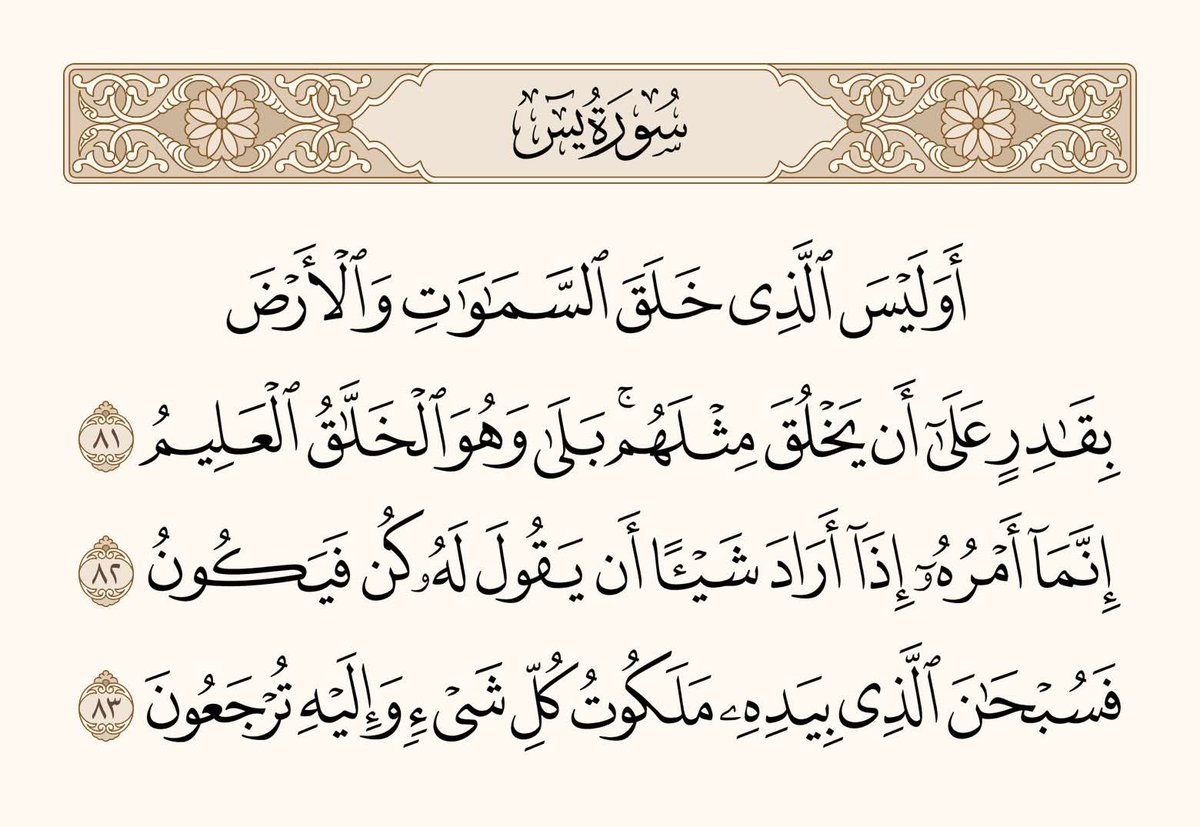 سُورَةُ يسٓ
أَوَلَيْسَ ٱلَّذِى خَلَقَ ٱلسَّمَـٰوَٰتِ وَٱلْأَرْضَ
بِقَـٰدِرٍ عَلَىٰٓ أَن يَخْلُقَ مِثْلَهُم ۚ بَلَىٰ وَهُوَ ٱلْخَلَّـٰقُ ٱلْعَلِيمُ ٨١
إِنَّمَآ أَمْرُهُۥٓ إِذَآ أَرَادَ شَيْـًٔا أَن يَقُولَ لَهُۥ كُن فَيَكُونُ ٨٢
فَسُبْحَـٰنَ ٱلَّذِى بِيَدِهِۦ مَلَكُوتُ كُلِّ شَىْءٍ وَإِلَيْهِ تُرْجَعُونَ ٨٣